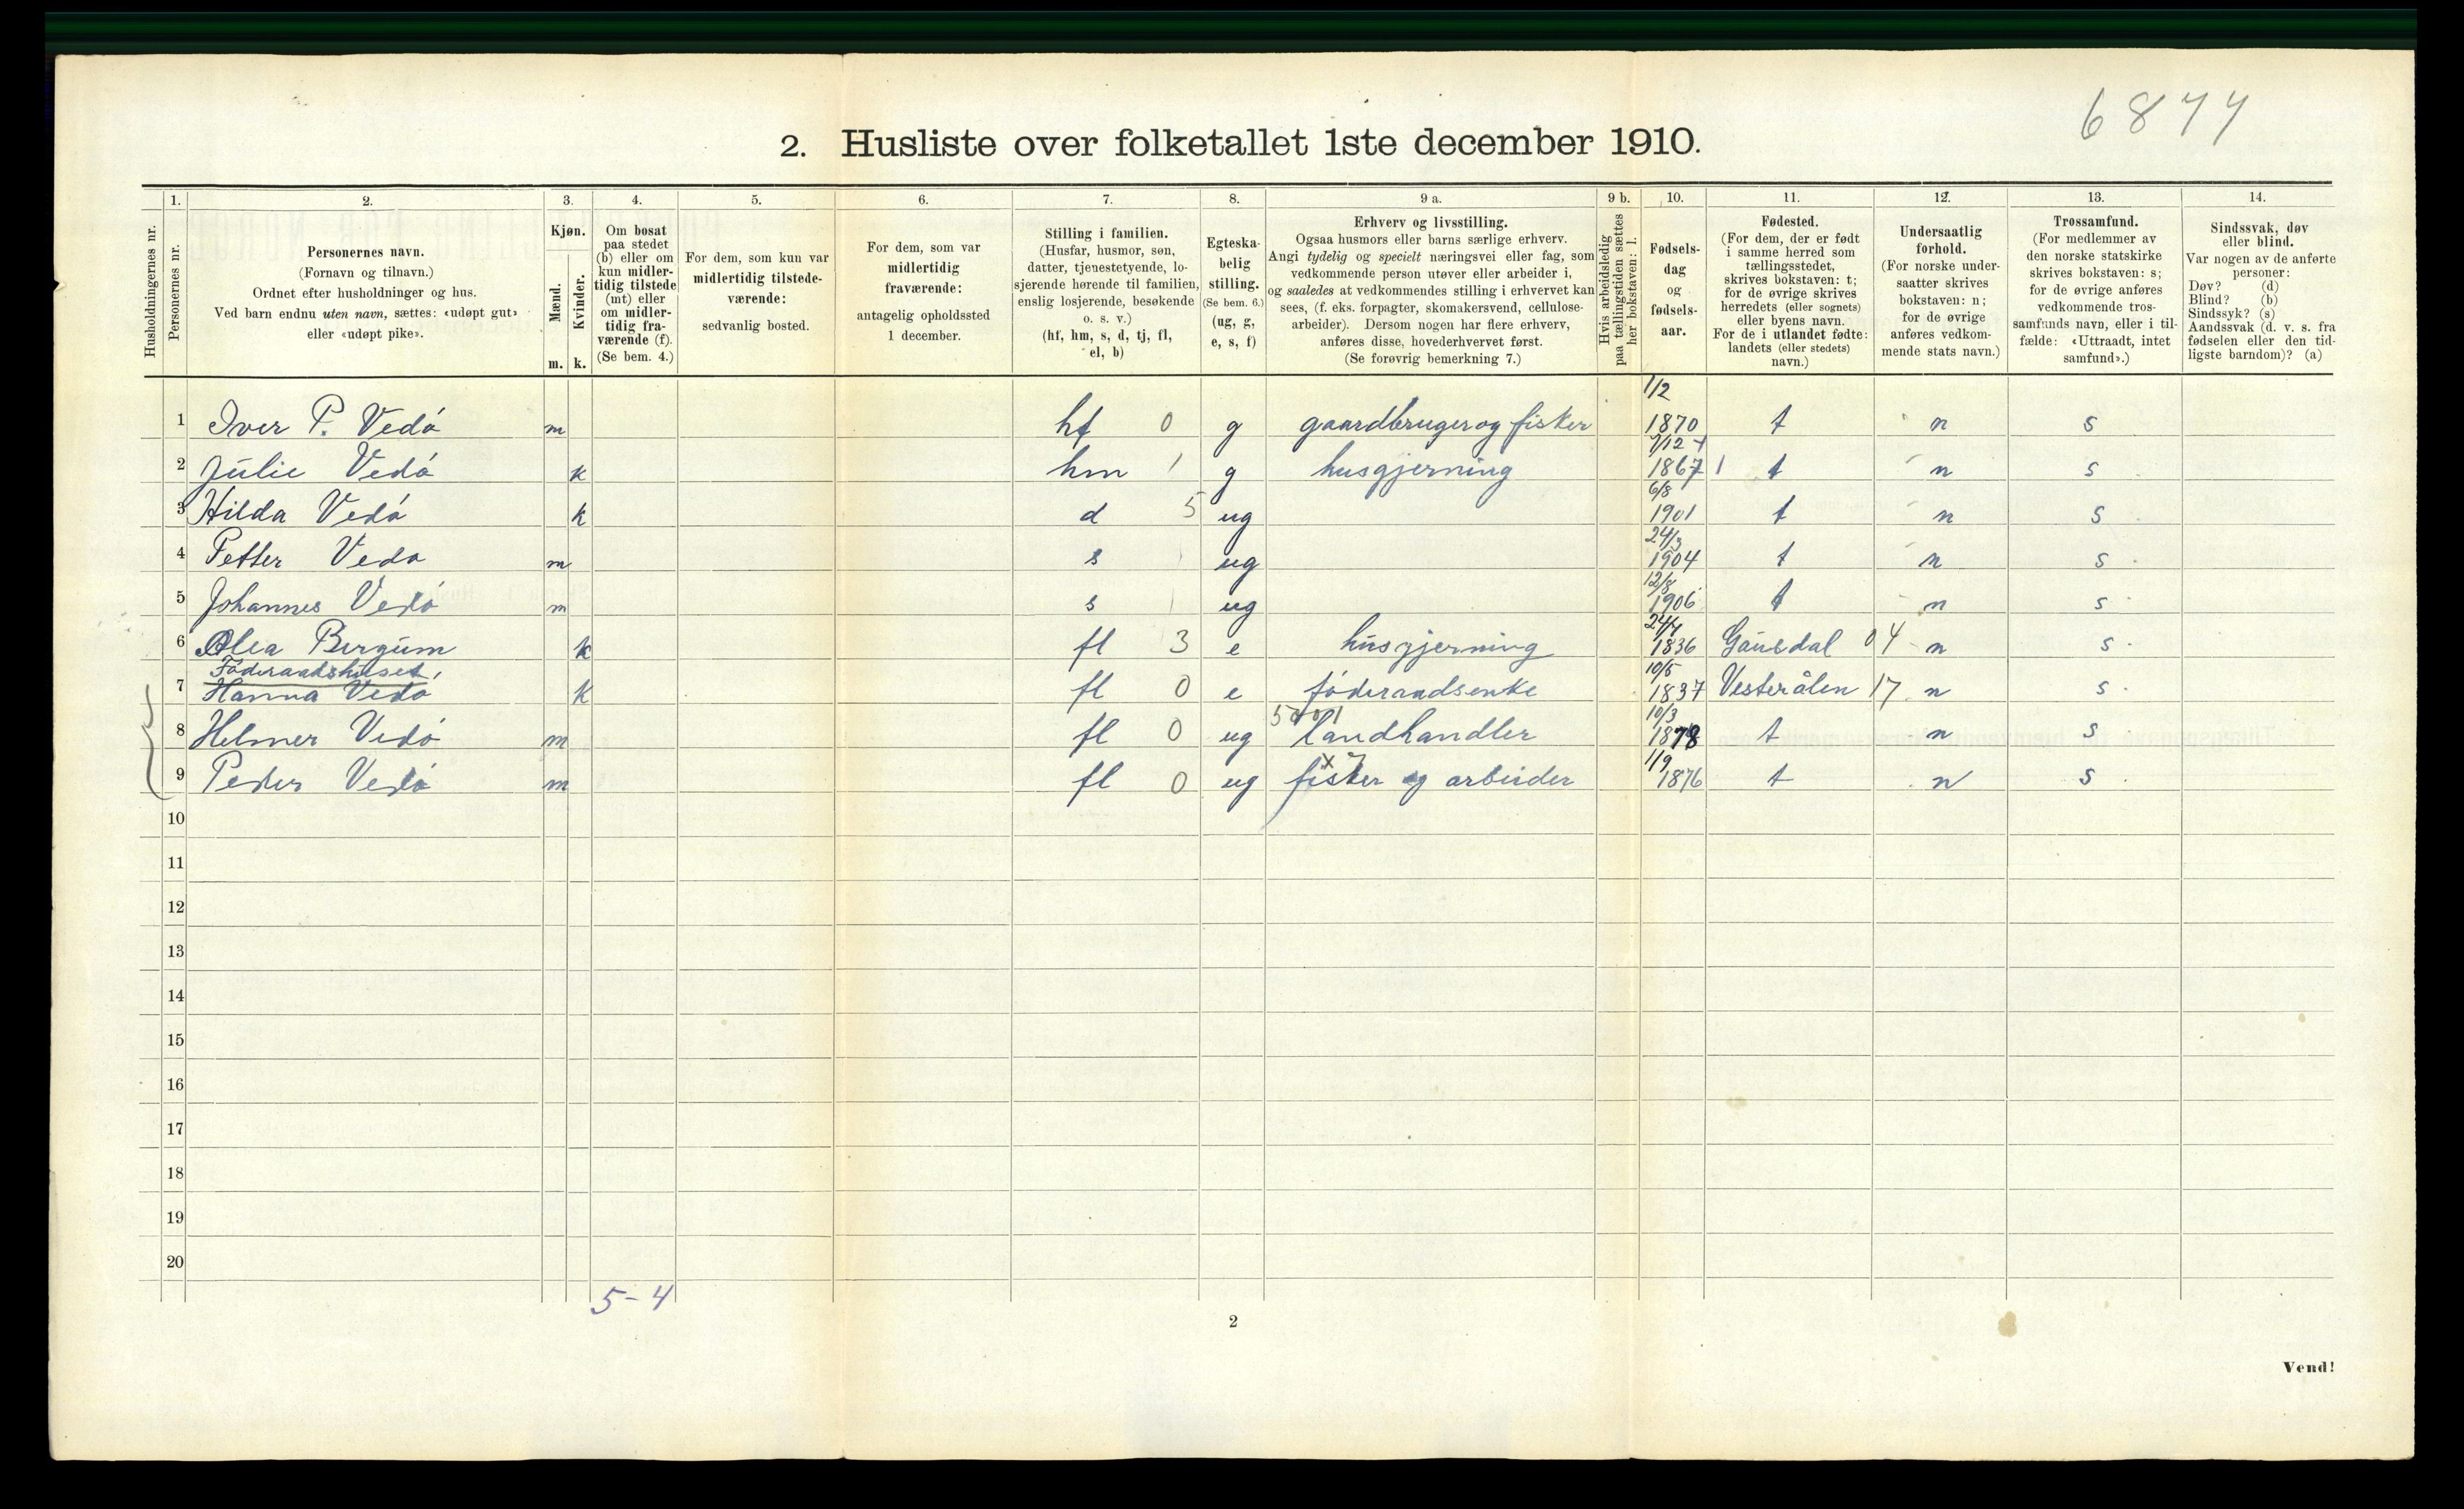 6877
2. Husliste over folketallet 1ste december 1910.
Husholdningernes nr.
1.
Personernes nr.
2.
Personernes navn.
(Fornavn og tilnavn.)
Ordnet efter husholdninger og hus.
Ved barn endnu uten navn, sættes: «udøpt gut»
eller «udøpt pike».
3.
Kjøn.
Mænd.
Kvinder.
m. k.
4.
Om bosat
paa stedet
(b) eller om
kun midler-
tidig tilstede
(mt) eller
om midler-
tidig fra-
værende (f).
(Se bem. 4.)
5.
For dem, som kun var
midlertidig tilstede-
værende:
sedvanlig bosted.
6.
For dem, som var
midlertidig
fraværende:
antagelig opholdssted
1 december.
7.
Stilling i familien.
(Husfar, husmor, søn,
datter, tjenestetyende, lo-
sjerende hørende til familien,
enslig losjerende, besøkende
o. s. v.)
(hf, hm, s, d, tj, fl,
el, b)
8.
Egteska-
belig
stilling.
(Se bem. 6.)
(ug, g,
e, s, f)
9 a.
Erhverv og livsstilling.
Ogsaa husmors eller barns særlige erhverv.
Angi tydelig og specielt næringsvei eller fag, som
vedkommende person utøver eller arbeider i,
og saaledes at vedkommendes stilling i erhvervet kan
sees, (f. eks. forpagter, skomakersvend, cellulose-
arbeider). Dersom nogen har flere erhverv,
anføres disse, hovederhvervet først.
(Se forøvrig bemerkning 7.)
9 b.
Hvis arbeidsledig
paa tællingstiden sættes
her bokstaven: l.
10.
Fødsels-
dag
og
fødsels-
aar.
11.
Fødested.
(For dem, der er født
i samme herred som
tællingsstedet,
skrives bokstaven: t;
for de øvrige skrives
herredets (eller sognets)
eller byens navn.
For de i utlandet fødte:
landets (eller stedets)
navn.)
12.
Undersaatlig
forhold.
(For norske under-
saatter skrives
bokstaven: n;
for de øvrige
anføres vedkom-
mende stats navn.)
13.
Trossamfund.
(For medlemmer av
den norske statskirke
skrives bokstaven: s;
for de øvrige anføres
vedkommende tros-
samfunds navn, eller i til-
fælde: «Uttraadt, intet
samfund».)
14.
Sindssvak, døv
eller blind.
Var nogen av de anførte
personer:
Døv? (d)
Blind? (b)
Sindssyk? (s)
Aandssvak (d. v. s. fra
fødselen eller den tid-
ligste barndom)? (a)
1 Iver P. Vedø m hf 0 g gaardbruger og fisker 1/2 1870 t n s
2 Julie Vedø k hm 1 g husgjerning 7/12 1867 1 t n s
3 Hilda Vedø k d 5 ug 6/8 1901 t n s
4 Petter Vedø m s ug 24/3 1904 t n s
5 Johannes Vedø m s ug 12/8 1906 t n s
6 Olea Bergum k fl 3 e husgjerning 24/4 1836 Gausdal 04 n s
Føderaadshuset,
7 Hanna Vedø k fl 0 e føderaadsenke 10/5 1837 Vesterålen 17 n s
8 Helmer Vedø m fl 0 ug landhandler 10/3 1878 t n s
9 Peder Vedø m fl 0 ug fisker og arbeider 1/9 1876 t n s
10
11
12
13
14
15
16
17
18
19
20
5-4
2
Vend!